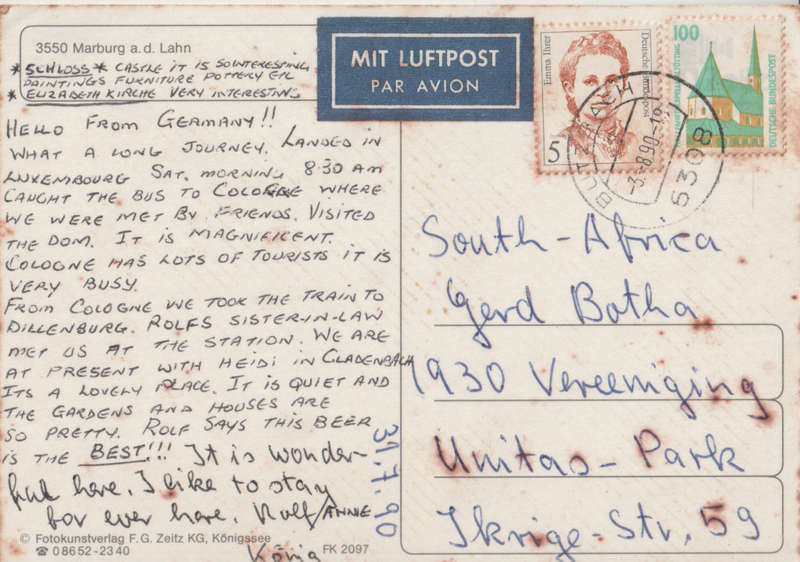 3550 Marburg a. d. Lahn
* SCHLOSS * CASTLE IT IS SO INTERESTING
PAINTINGS FURNITURE POTTERY ETC
* ELIZABETH KIRCHE VERY INTERESTING
HELLO FROM GERMANY!!
WHAT A LONG JOURNEY. LANDED IN
LUXEMBOURG SAT. MORNING 8·30 AM
CAUGHT THE BUS TO COLOGNE WHERE
WE WERE MET BY FRIENDS. VISITED
THE DOM. IT IS MAGNIFICENT.
COLOGNE HAS LOTS OF TOURISTS IT IS
VERY BUSY.
FROM COLOGNE WE TOOK THE TRAIN TO
DILLENBURG. ROLFS SISTER-IN-LAW
MET US AT THE STATION. WE ARE
AT PRESENT WITH HEIDI IN GLADENBACH
ITS A LOVELY PLACE. IT IS QUIET AND
THE GARDENS AND HOUSES ARE
SO PRETTY. ROLF SAYS THIS BEER
IS THE BEST!!! It is wonder-
ful here. I like to stay
for ever here. Rolf ANNE
König
31.7.90
© Fotokunstverlag F. G. Zeitz KG, Königssee
☎ 0 86 52 - 23 40
FK 2097
MIT LUFTPOST
PAR AVION
Emma Ihrer
Deutsche Bundespost
5
100
DEUTSCHE BUNDESPOST
6308
South-Africa
Gerd Botha
1930 Vereeniging
Unitas-Park
Ikrige-Str. 59